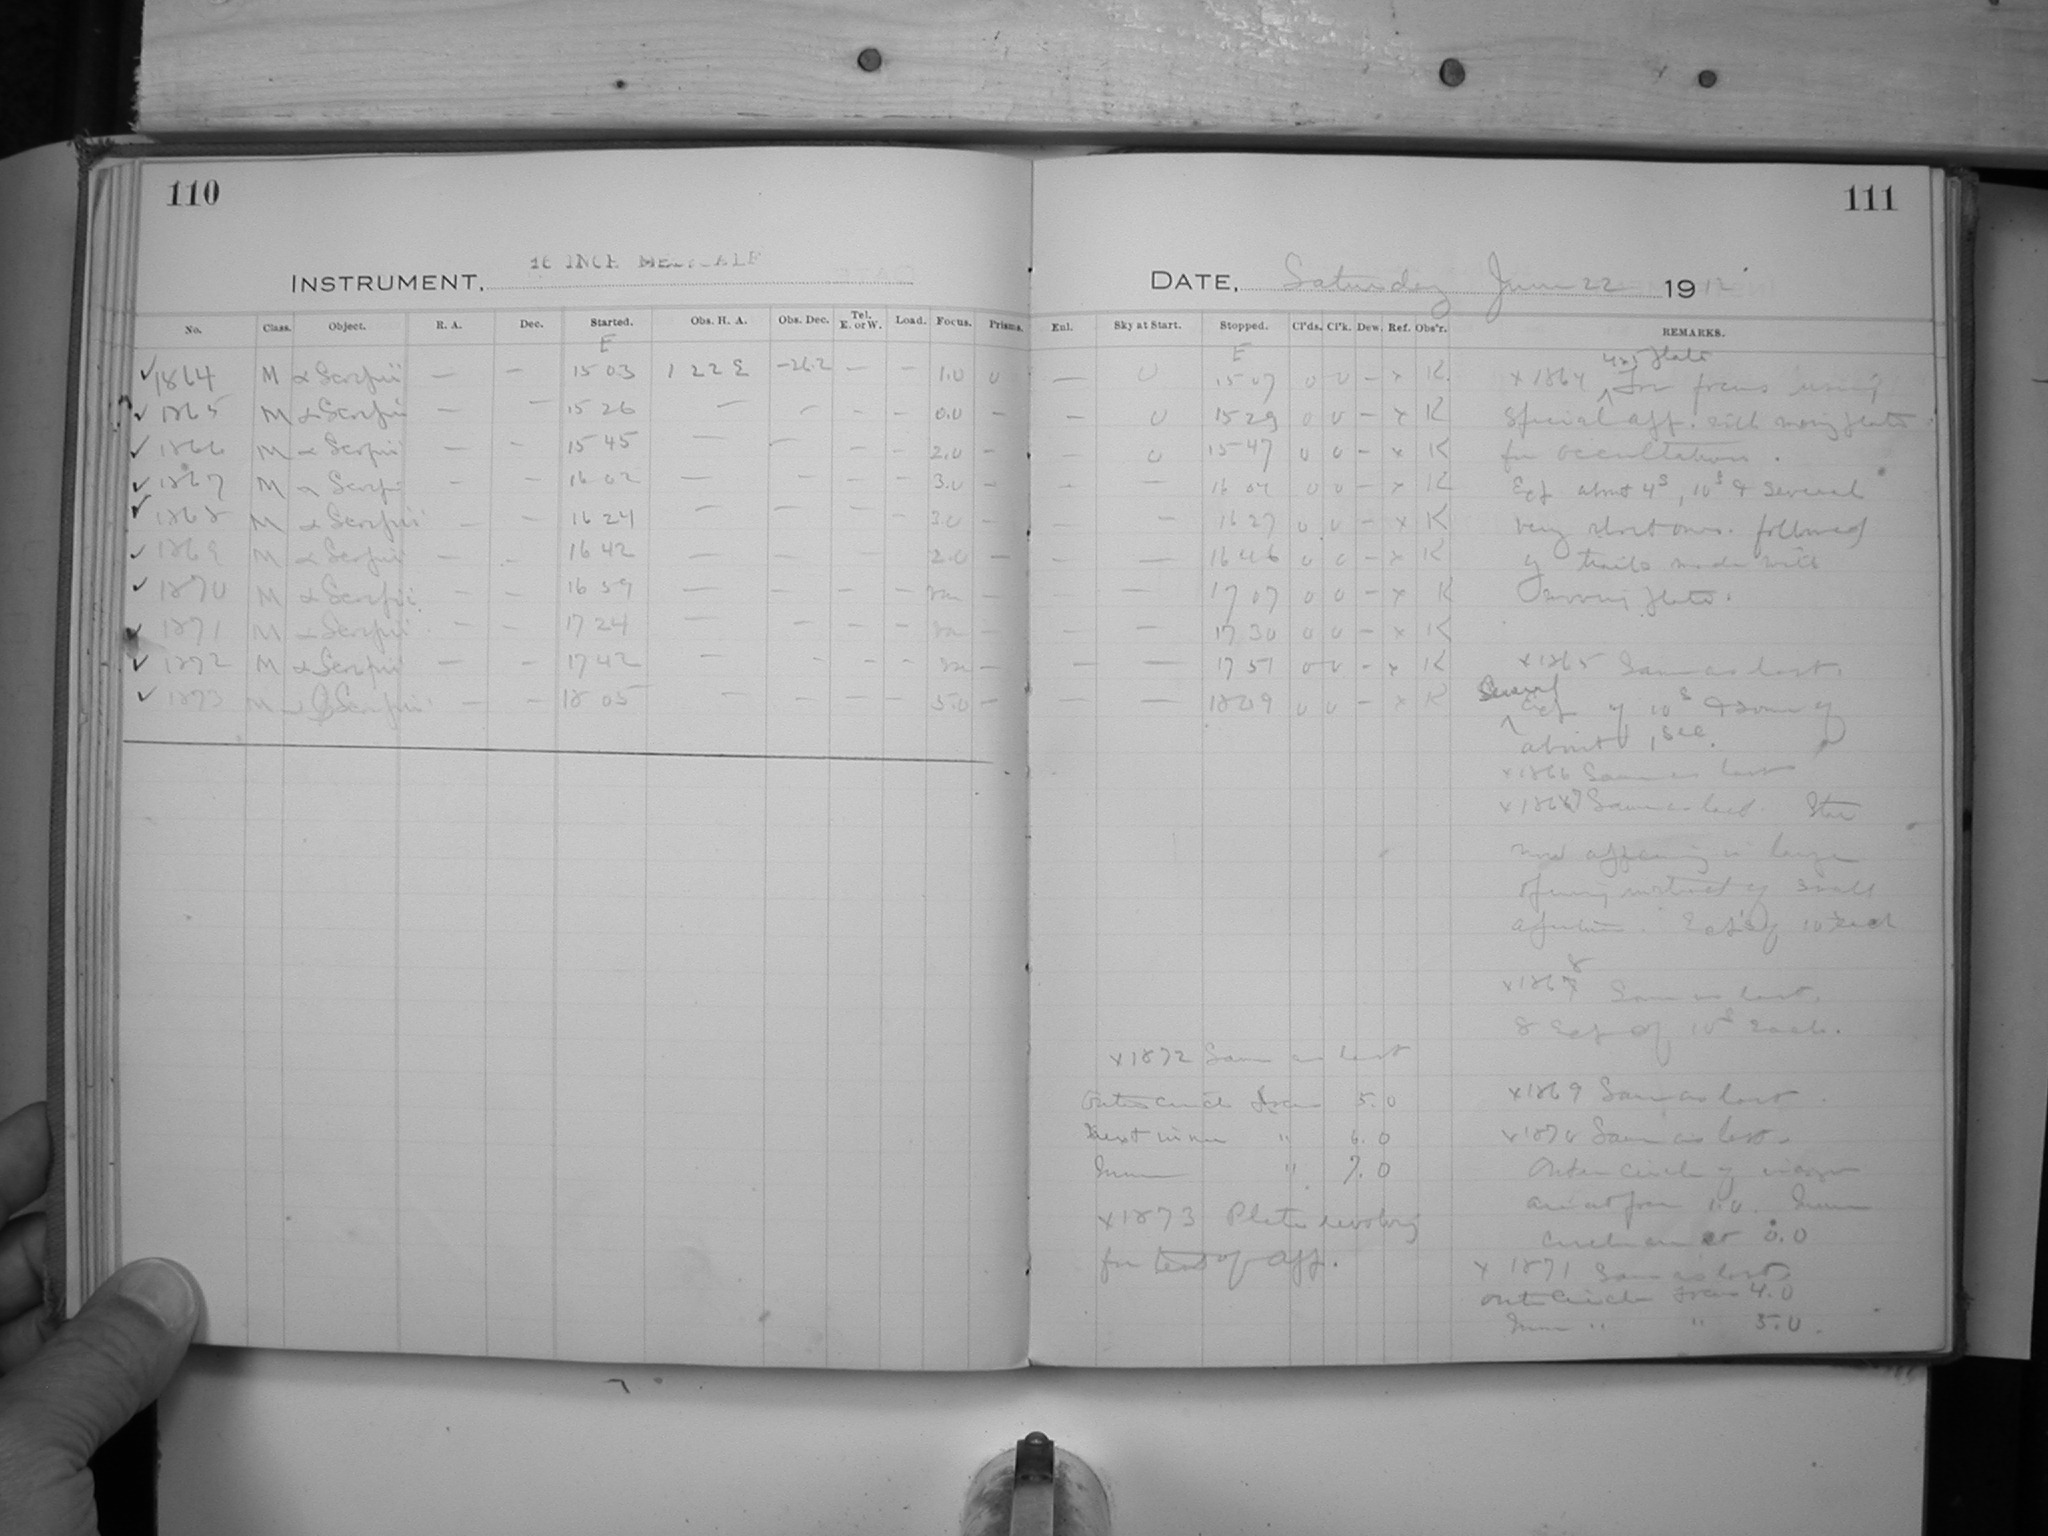 110
INSTRUMENT, 16 INCH METCALF
No. Class. Object. R. A. Dec. Started. Obs. H. A. Obs. Dec. Tel. E. or W. Load. Focus. Prisms.
E
✓ 1864 M α Scorpii — — 15 03 1 22 E -26.2 — — 1.0 0
✓ 1865 M α Scorpii — — 15 26 — — — — 0.0 —
✓ 1866 M α Scorpii — — 15 45 — — — — 2.0 —
✓ 1867 M α Scorpii — — 16 02 — — — — 3.0 —
✓ 1868 M α Scorpii — — 16 24 — — — — 3.0 —
✓ 1869 M α Scorpii — — 16 42 — — — 2.0 —
✓ 1870 M α Scorpii — — 16 59 — — — — —
✓ 1871 M α Scorpii — — 17 24 — — — — —
✓ 1872 M α Scorpii — — 17 42 — — — — —
✓ 1873 M α Scorpii — — 18 05 — — — — 5.0 —
111
DATE, Saturday June 22 1912
Enl. Sky at Start. Stopped. Cl'ds. Cl'k. Dew. Ref. Obs'r. REMARKS.
E
— 0 15 07 0 0 — x K
— 0 15 29 0 0 — x K
— 0 15 47 0 0 — x K
— — 16 0 0 — x K
— — 16 27 0 0 — x K
— — 16 46 0 0 — x K
— — 17 07 0 0 — x K
— — 17 30 0 0 — x K
— — 17 51 0 0 — x K
— — 18 09 0 0 — x K
plate
x 1864 for focus using
special app. with moving plate
for occultations.
Exp about 4s, 10s & several
very short ones. followed
by trails made with
moving plate.
x 1865 Same as last.
Several
Exp of 10s & some of
about 1 sec.
x 1866 Same as last
x 1867 Same as last. Star
now appearing in larger
opening instead of small
aperture. Exp's of 10s each
x 1868 Same as last.
8 Exp of 10s Each.
x 1869 Same as last.
x 1870 Same as last.
Outer circle of images
are at focus 1.0. Inner
circle are at 0.0
x 1871 Same as last
Outer Circle focus 4.0
Inner " " 5.0.
x 1872 Same as last
Outer circle focus 5.0
Next inner " 6.0
Inner " 7.0
x 1873 Plate revolving
for test of app.